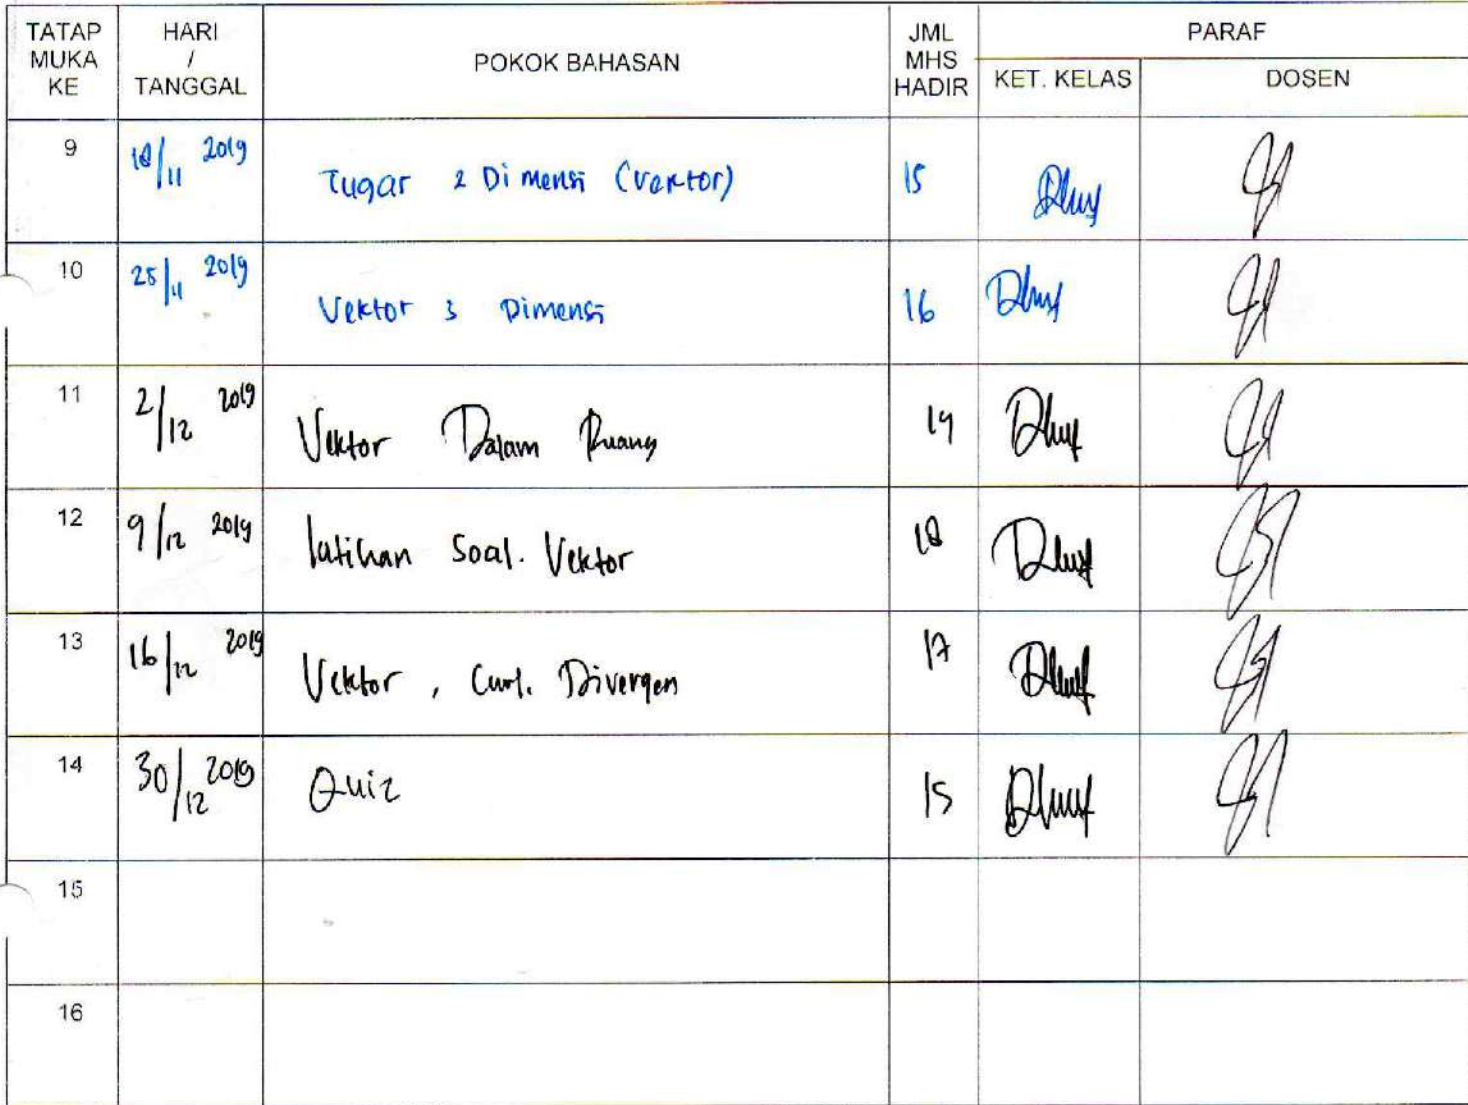 TATAP MUKA KE HARI / TANGGAL POKOK BAHASAN JML MHS HADIR PARAF
KET. KELAS DOSEN
9 18/11 2019 Tugas 2 Dimensi (Vektor) 15
10 25/11 2019 Vektor 3 Dimensi 16
11 2/12 2019 Vektor Dalam Ruang 19
12 9/12 2019 latihan Soal. Vektor 18
13 16/12 2019 Vektor, Curl. Divergen 17
14 30/12 2019 Quiz 15
15
16